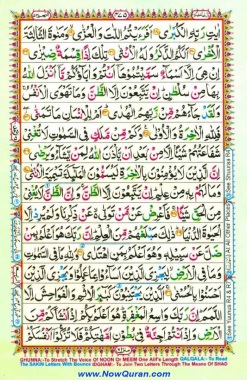 اٰيٰتِ رَبِّهِ الْكُبْرٰى اَفَرَءَيْتُمُ اللّٰتَ وَالْعُزّٰى وَمَنٰوةَ الثَّالِثَةَ
الْاُخْرٰى اَلَكُمُ الذَّكَرُ وَلَهُ الْاُنْثٰى تِلْكَ اِذًا قِسْمَةٌ ضِيْزٰى
اِنْ هِيَ اِلَّا اَسْمَآءٌ سَمَّيْتُمُوْهَا اَنْتُمْ وَاٰبَآؤُكُمْ مَّا اَنْزَلَ اللّٰهُ
بِهَا مِنْ سُلْطٰنٍ اِنْ يَّتَّبِعُوْنَ اِلَّا الظَّنَّ وَمَا تَهْوَى الْاَنْفُسُ
وَلَقَدْ جَآءَهُمْ مِّنْ رَّبِّهِمُ الْهُدٰى اَمْ لِلْاِنْسَانِ مَا تَمَنّٰى
فَلِلّٰهِ الْاٰخِرَةُ وَالْاُوْلٰى وَكَمْ مِّنْ مَّلَكٍ فِي السَّمٰوٰتِ لَا تُغْنِيْ
شَفَاعَتُهُمْ شَيْئًا اِلَّا مِنْ بَعْدِ اَنْ يَّأْذَنَ اللّٰهُ لِمَنْ يَّشَآءُ وَيَرْضٰى
اِنَّ الَّذِيْنَ لَا يُؤْمِنُوْنَ بِالْاٰخِرَةِ لَيُسَمُّوْنَ الْمَلٰٓئِكَةَ تَسْمِيَةَ الْاُنْثٰى
وَمَا لَهُمْ بِهٖ مِنْ عِلْمٍ اِنْ يَّتَّبِعُوْنَ اِلَّا الظَّنَّ وَاِنَّ الظَّنَّ لَا يُغْنِيْ
مِنَ الْحَقِّ شَيْئًا فَاَعْرِضْ عَنْ مَّنْ تَوَلّٰى عَنْ ذِكْرِنَا وَلَمْ يُرِدْ اِلَّا
الْحَيٰوةَ الدُّنْيَا ذٰلِكَ مَبْلَغُهُمْ مِّنَ الْعِلْمِ اِنَّ رَبَّكَ هُوَ اَعْلَمُ بِمَنْ
ضَلَّ عَنْ سَبِيْلِهٖ وَهُوَ اَعْلَمُ بِمَنِ اهْتَدٰى وَلِلّٰهِ مَا فِي السَّمٰوٰتِ
وَمَا فِي الْاَرْضِ لِيَجْزِيَ الَّذِيْنَ اَسَآءُوْا بِمَا عَمِلُوْا وَيَجْزِيَ الَّذِيْنَ
اَحْسَنُوْا بِالْحُسْنٰى اَلَّذِيْنَ يَجْتَنِبُوْنَ كَبٰٓئِرَ الْاِثْمِ وَالْفَوَاحِشَ اِلَّا
اللَّمَمَ اِنَّ رَبَّكَ وَاسِعُ الْمَغْفِرَةِ هُوَ اَعْلَمُ بِكُمْ اِذْ اَنْشَاَكُمْ
مِّنَ الْاَرْضِ وَاِذْ اَنْتُمْ اَجِنَّةٌ فِيْ بُطُوْنِ اُمَّهٰتِكُمْ فَلَا تُزَكُّوْا اَنْفُسَكُمْ
GHUNNA:-To Stretch The Voice Of NOON Or MEEM One Alif's Length QALQALA:- To Read
The SAKIN Letters With Bounce IDGHAM:- To Join Two Letters Through The Means Of SHAD
www.NowQuran.com